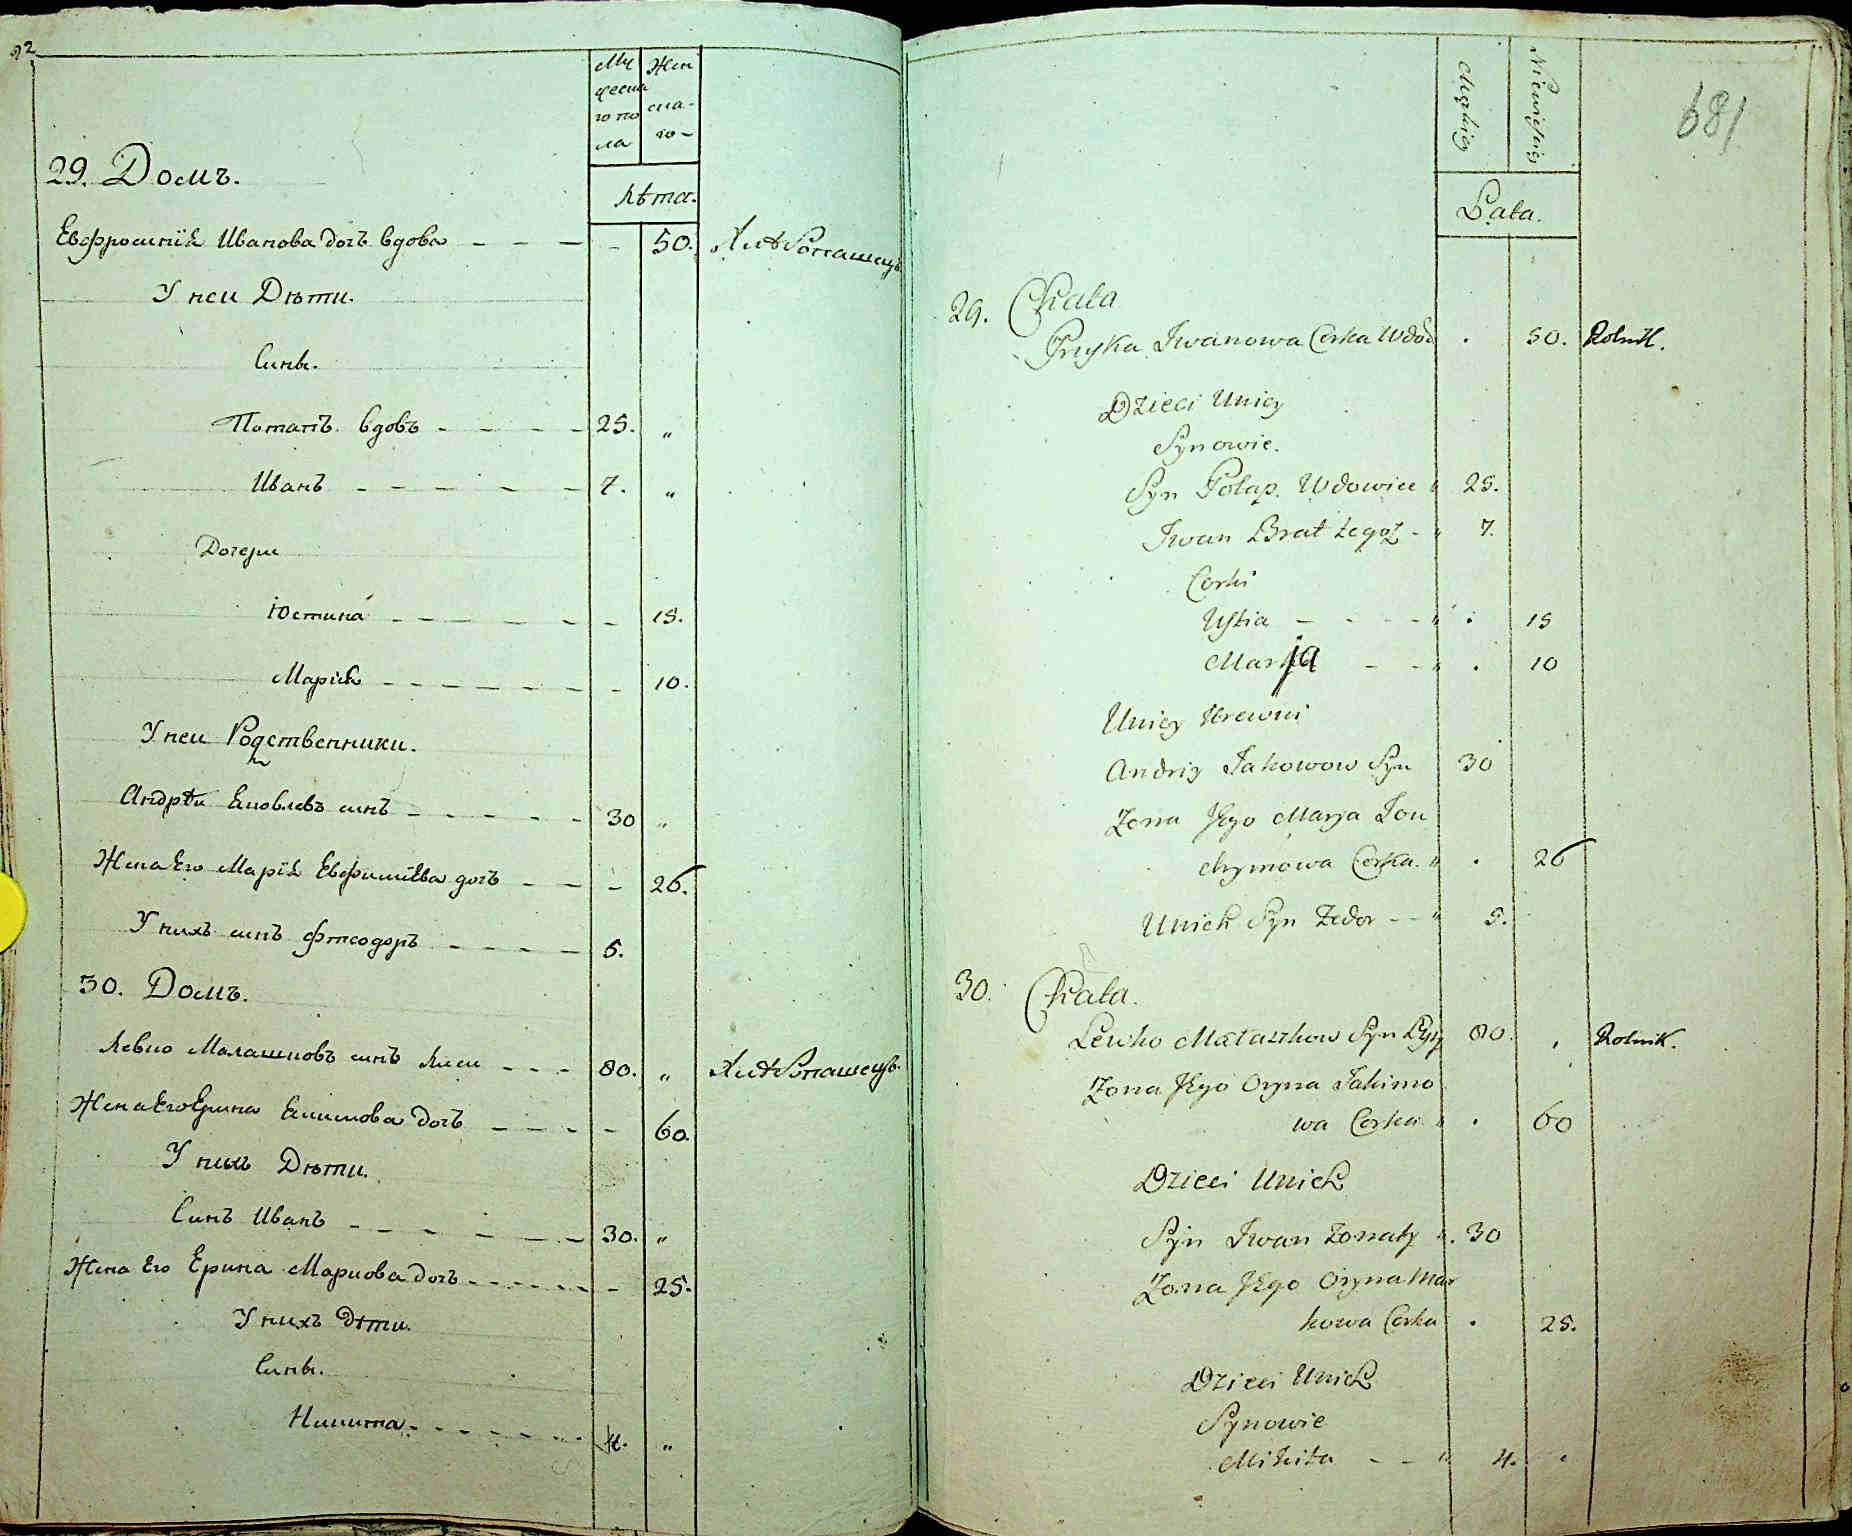 92
Му
ческа
го по
ла
Жен
ска-
го-
Лѣта.
29. Домъ.
Евфросинія Иванова дочъ вдова - - - - 50. Хлѣбопашецъ
У неи Дѣти.
Сины.
Потапъ вдовъ - - - - 25. „
Иванъ - - - - - 7. „
Дочери
Юстина - - - - - - 15.
Марія - - - - - - 10.
У неи Родственники.
Андрѣи Яковлевъ синъ - - - - - 30 „
Жена Его Марія Евфимиева дочъ - - - 26.
У нихъ синъ Фтеодоръ - - - - 5.
30. Домъ.
Левко Малашковъ синъ Лиси - - - 80. „ Хлѣбопашецъ
Жена Его Ерина Екимова дочъ - - - - - 60.
У нихъ Дѣти.
Синъ Иванъ - - - - - 30. „
Жена Его Ерина Маркова дочъ - - - - - - 25.
У нихъ дѣти.
Сины.
Никита - - - - - - 4. „
681
Męzkiey
Niewiskiey
Łata.
29. Chata
Pryska Iwanowa Corka Wdow . 50. Rolnik.
Dzieci Uniey
Synowie.
Syn Potap. Wdowiec „ 25.
Iwan Brat tegoż - „ 7.
Corki
Ustia - - - - „ . 15
Marja - - „ . 10
Uniey Krewni
Andriy Jakowow Syn 30
Zona Jego Marya Jou
chymowa Corka. „ . 26
Unich Syn Fedor - - „ 5.
30. Chata.
Lewko Małaszkow Syn Łysy 80. , Rolnik.
Zona Jego Oryna Jakimo
wa Corka „ . 60
Dzieci Unich
Syn Iwan Zonaty „. 30
Zona Jego Oryna Mar
kowa Corka . 25.
Dzieci Unich
Synowie
Mikita - - „ 4. „